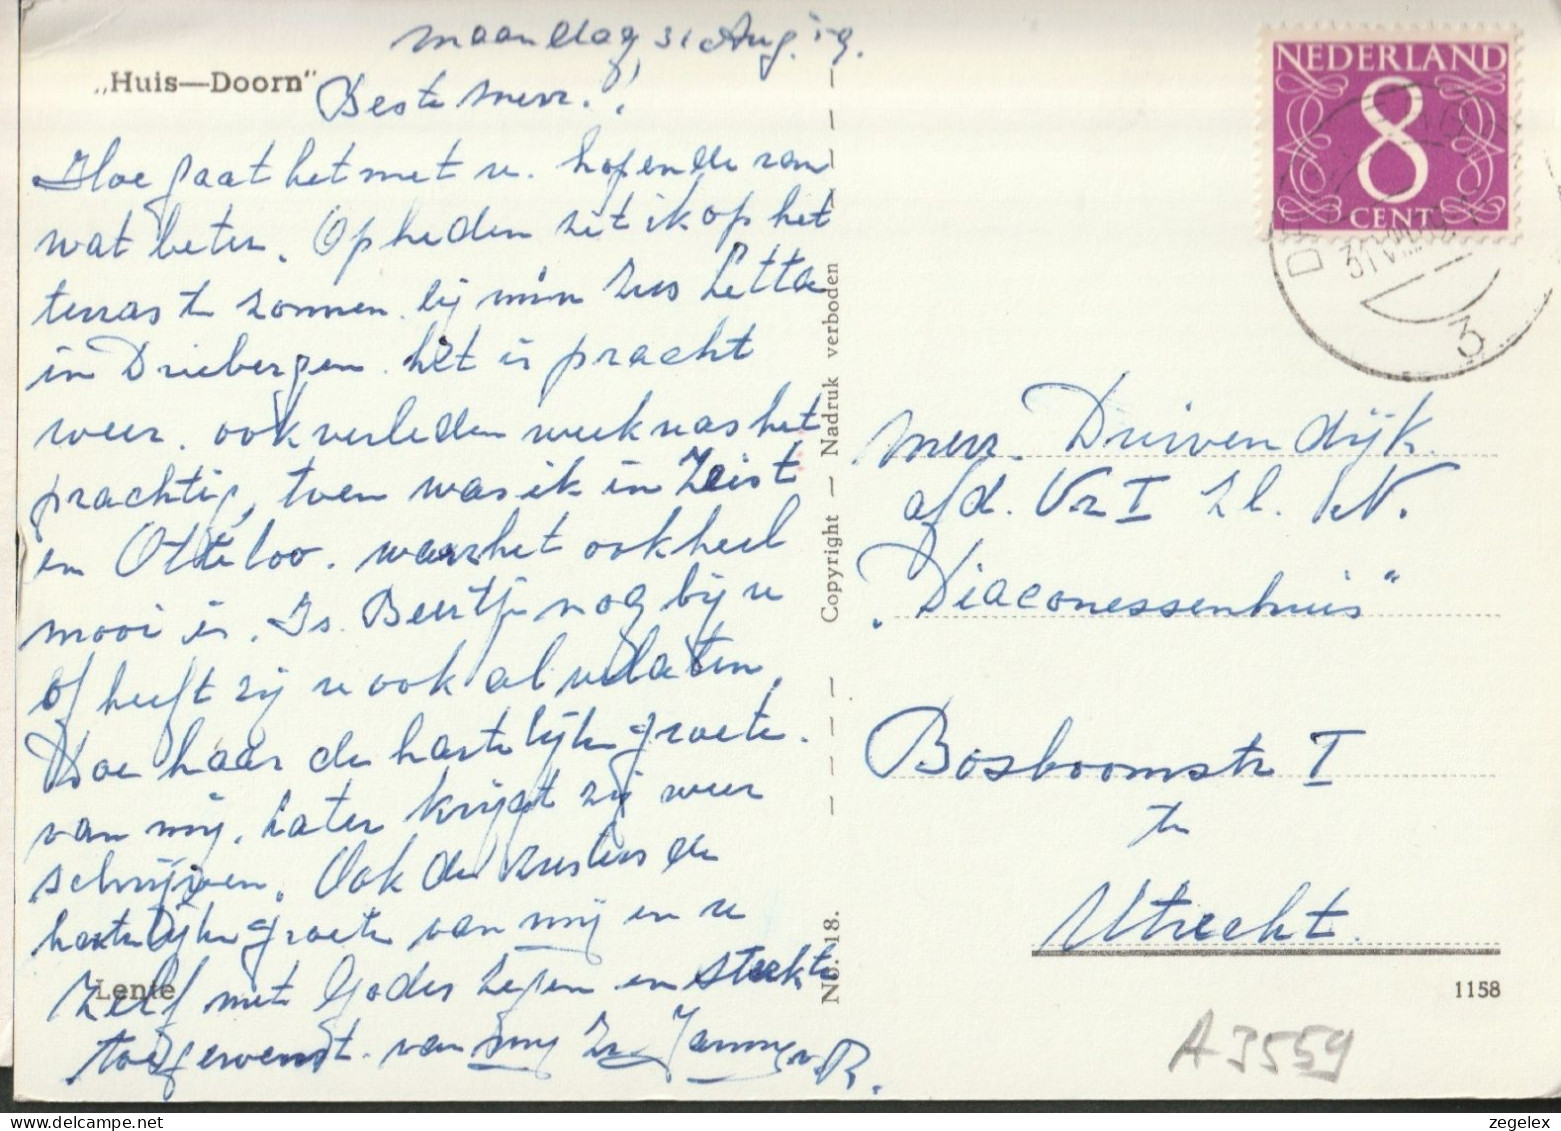 maandag, 31 Aug. 59.
„Huis—Doorn"
Beste Mevr.!
Hoe gaat het met u. hopende van
wat beter. Op heden zit ik op het
terras te zonnen bij mijn zus Letta
in Driebergen. het is pracht
weer. ook verleden week was het
prachtig, toen was ik in Zeist
en Otterloo. waar het ook heel
mooi is. Is Beertje nog bij u
of heeft zij u ook al verlaten,
Doe haar de hartelijke groete.
van mij. Later krijgt zij weer
schrijven. Ook de zusters de
hartelijke groete van mij en u
Zelf met Godes zegen en sterkte
toegewenst. van mij Zr. Janny v R.
Lente
Copyright — Nadruk verboden
No. 18.
NEDERLAND
8
CENT
3
Mevr. Druivendijk.
afd. Vr I Zl. N.
„Diaconessenhuis"
Bosboomstr I
te
Utrecht.
1158
A3559
zegelex